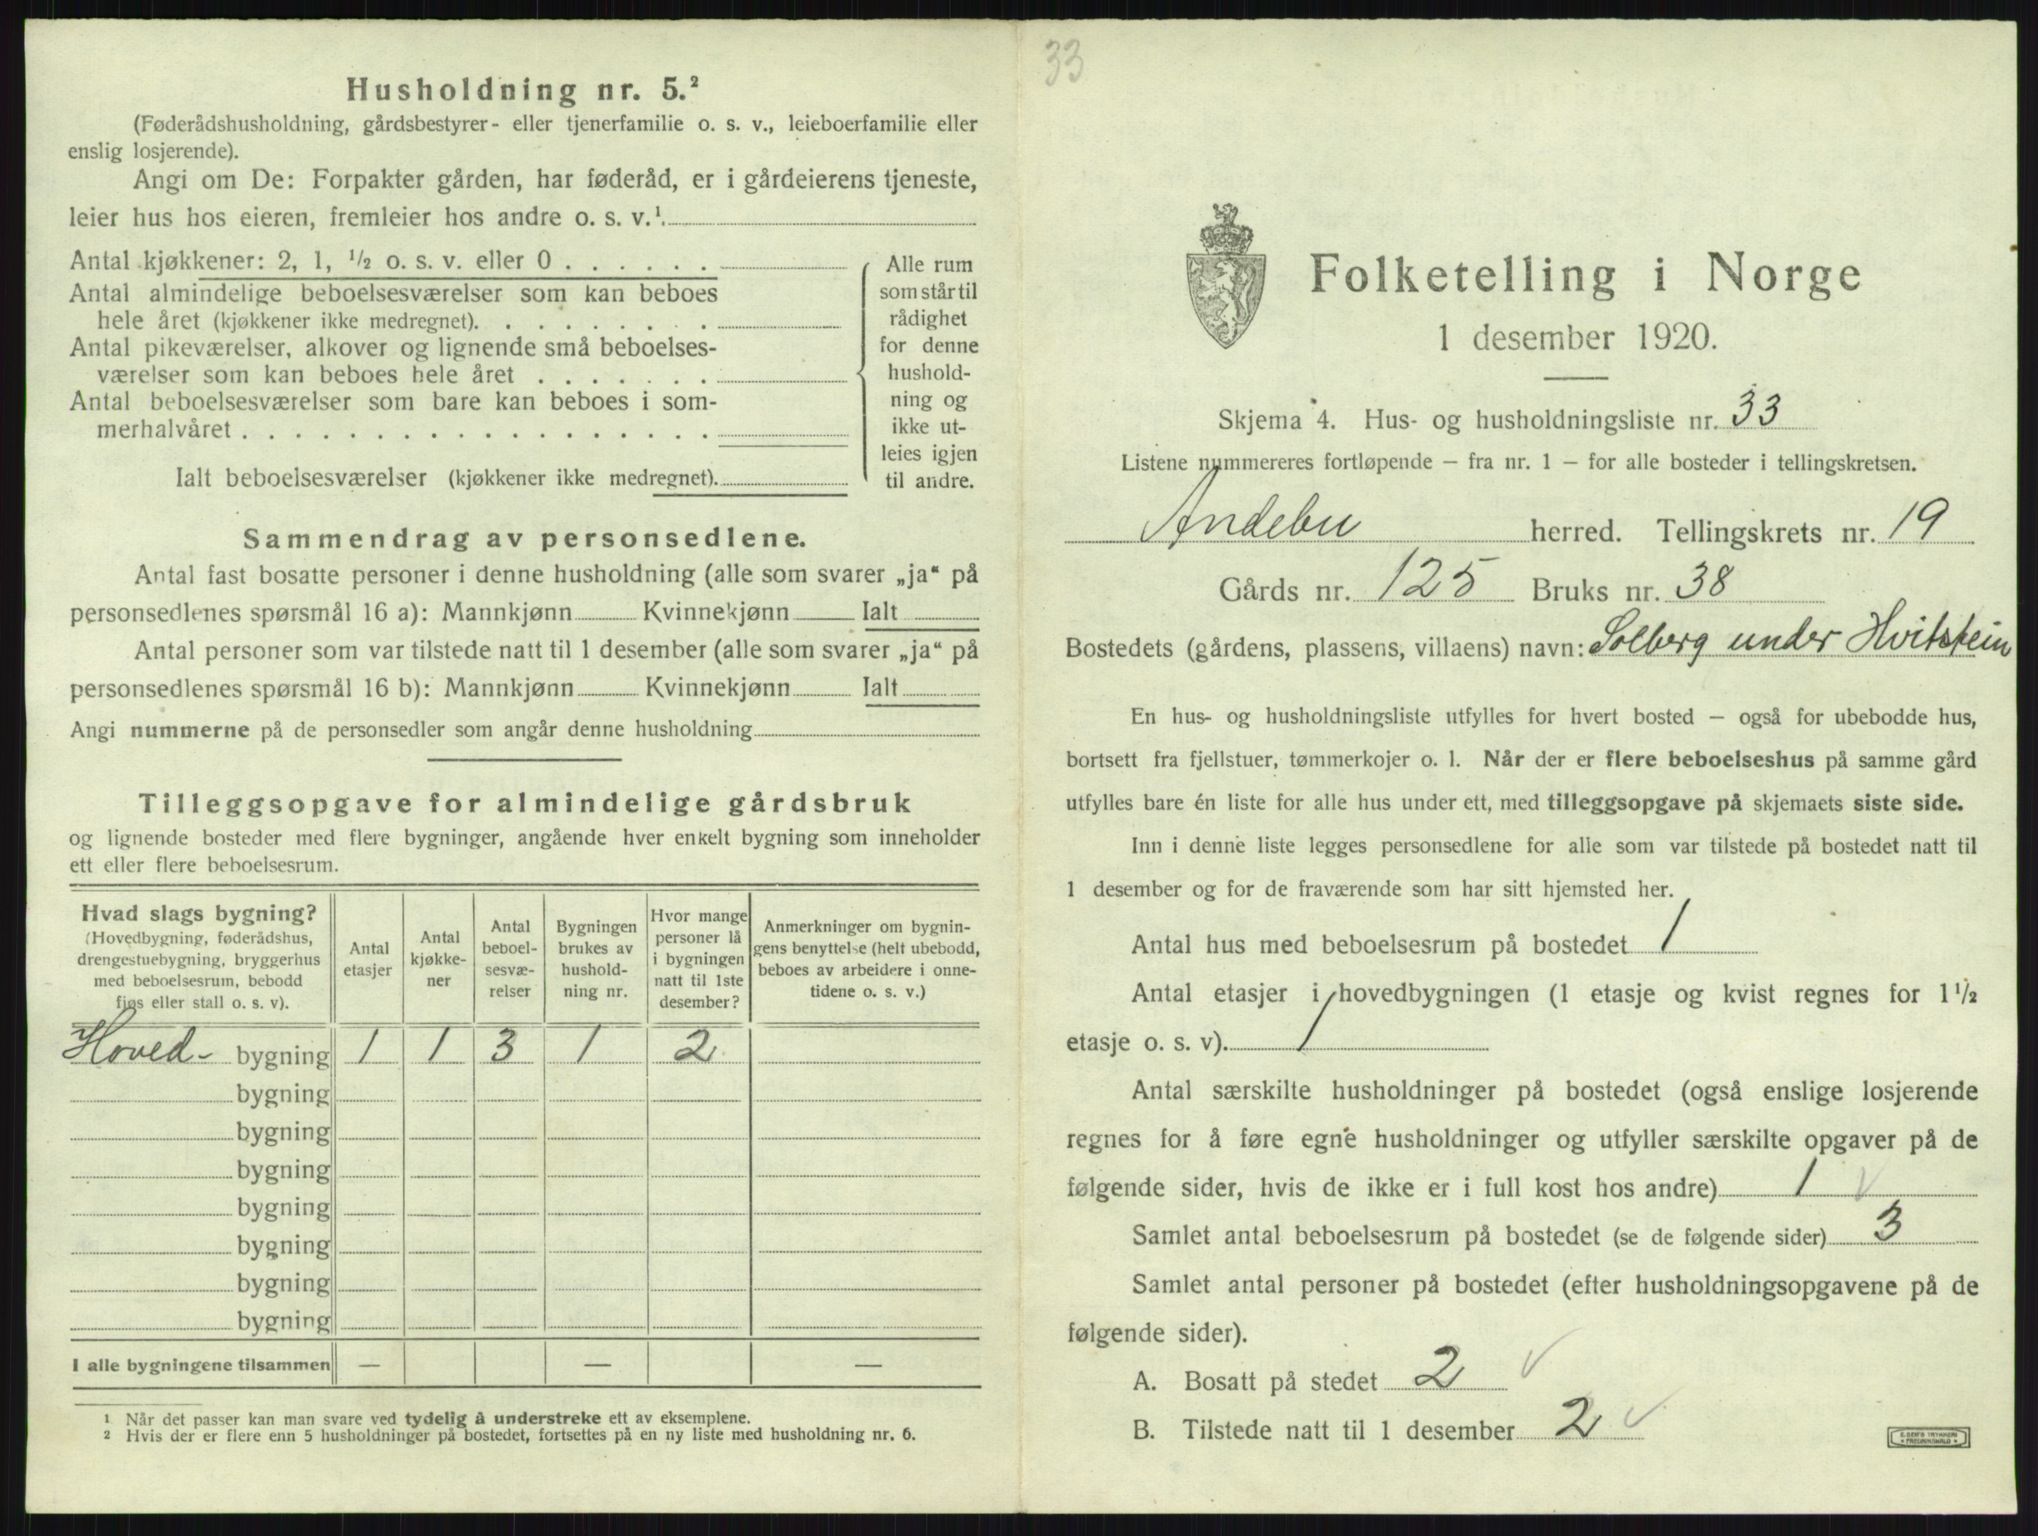 Husholdning nr. 5.²
(Føderådshusholdning, gårdsbestyrer- eller tjenerfamilie o. s. v., leieboerfamilie eller
enslig losjerende).
Angi om De: Forpakter gården, har føderåd, er i gårdeierens tjeneste,
leier hus hos eieren, fremleier hos andre o. s. v.¹.
Antal kjøkkener: 2, 1, ½ o. s. v. eller 0 . . . . . .
Antal almindelige beboelsesværelser som kan beboes
hele året (kjøkkener ikke medregnet). . . . . . . . .
Antal pikeværelser, alkover og lignende små beboelses-
værelser som kan beboes hele året . . . . . . .
Antal beboelsesværelser som bare kan beboes i som-
merhalvåret . . . . . . . . . . . . . . . . . .
Ialt beboelsesværelser (kjøkkener ikke medregnet).
Alle rum
som står til
rådighet
for denne
hushold-
ning og
ikke ut-
leies igjen
til andre.
Sammendrag av personsedlene.
Antal fast bosatte personer i denne husholdning (alle som svarer „ja“ på
personsedlenes spørsmål 16 a): Mannkjønn Kvinnekjønn Ialt
Antal personer som var tilstede natt til 1 desember (alle som svarer „ja“ på
personsedlenes spørsmål 16 b): Mannkjønn Kvinnekjønn Ialt
Angi nummerne på de personsedler som angår denne husholdning
Tilleggsopgave for almindelige gårdsbruk
og lignende bosteder med flere bygninger, angående hver enkelt bygning som inneholder
ett eller flere beboelsesrum.
Hvad slags bygning?
(Hovedbygning, føderådshus,
drengestuebygning, bryggerhus
med beboelsesrum, bebodd
fjøs eller stall o. s. v).
Antal
etasjer
Antal
kjøkke-
ner
Antal
beboel-
sesvæ-
relser
Bygningen
brukes av
hushold-
ning nr.
Hvor mange
personer lå
i bygningen
natt til 1ste
desember?
Anmerkninger om bygnin-
gens benyttelse (helt ubebodd,
beboes av arbeidere i onne-
tidene o. s. v.)
Hoved- bygning 1 1 3 1 2
bygning
bygning
bygning
bygning
bygning
bygning
bygning
I alle bygningene tilsammen — — —
¹ Når det passer kan man svare ved tydelig å understreke ett av eksemplene.
² Hvis der er flere enn 5 husholdninger på bostedet, fortsettes på en ny liste med husholdning nr. 6.
33
Folketelling i Norge
1 desember 1920.
Skjema 4. Hus- og husholdningsliste nr. 33
Listene nummereres fortløpende – fra nr. 1 – for alle bosteder i tellingskretsen.
Andebu herred. Tellingskrets nr. 19
Gårds nr. 125 Bruks nr. 38
Bostedets (gårdens, plassens, villaens) navn: Solberg under Hvitstein
En hus- og husholdningsliste utfylles for hvert bosted – også for ubebodde hus,
bortsett fra fjellstuer, tømmerkojer o. l. Når der er flere beboelseshus på samme gård
utfylles bare én liste for alle hus under ett, med tilleggsopgave på skjemaets siste side.
Inn i denne liste legges personsedlene for alle som var tilstede på bostedet natt til
1 desember og for de fraværende som har sitt hjemsted her.
Antal hus med beboelsesrum på bostedet 1
Antal etasjer i hovedbygningen (1 etasje og kvist regnes for 1½
etasje o. s. v). 1
Antal særskilte husholdninger på bostedet (også enslige losjerende
regnes for å føre egne husholdninger og utfyller særskilte opgaver på de
følgende sider, hvis de ikke er i full kost hos andre) 1 ✓
Samlet antal beboelsesrum på bostedet (se de følgende sider) 3
Samlet antal personer på bostedet (efter husholdningsopgavene på de
følgende sider).
A. Bosatt på stedet 2 ✓
B. Tilstede natt til 1 desember 2 ✓